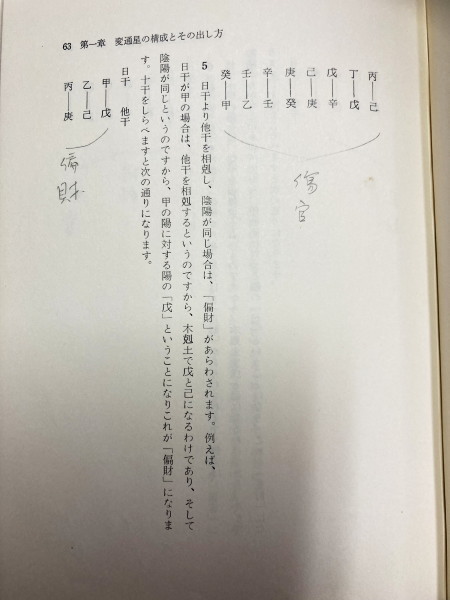 63 第一章 変通星の構成とその出し方
丙――己
丁――戊
戊――辛
己――庚
庚――癸
辛――壬
壬――乙
癸――甲
傷官
5 日干より他干を相剋し、陰陽が同じ場合は、「偏財」があらわされます。例えば、
日干が甲の場合は、他干を相剋するというのですから、木剋土で戊と己になるわけであり、そして
陰陽が同じというのですから、甲の陽に対する陽の「戊」ということになりこれが「偏財」になりま
す。十干をしらべますと次の通りになります。
日干 他干
甲――戊
乙――己
丙――庚
偏財